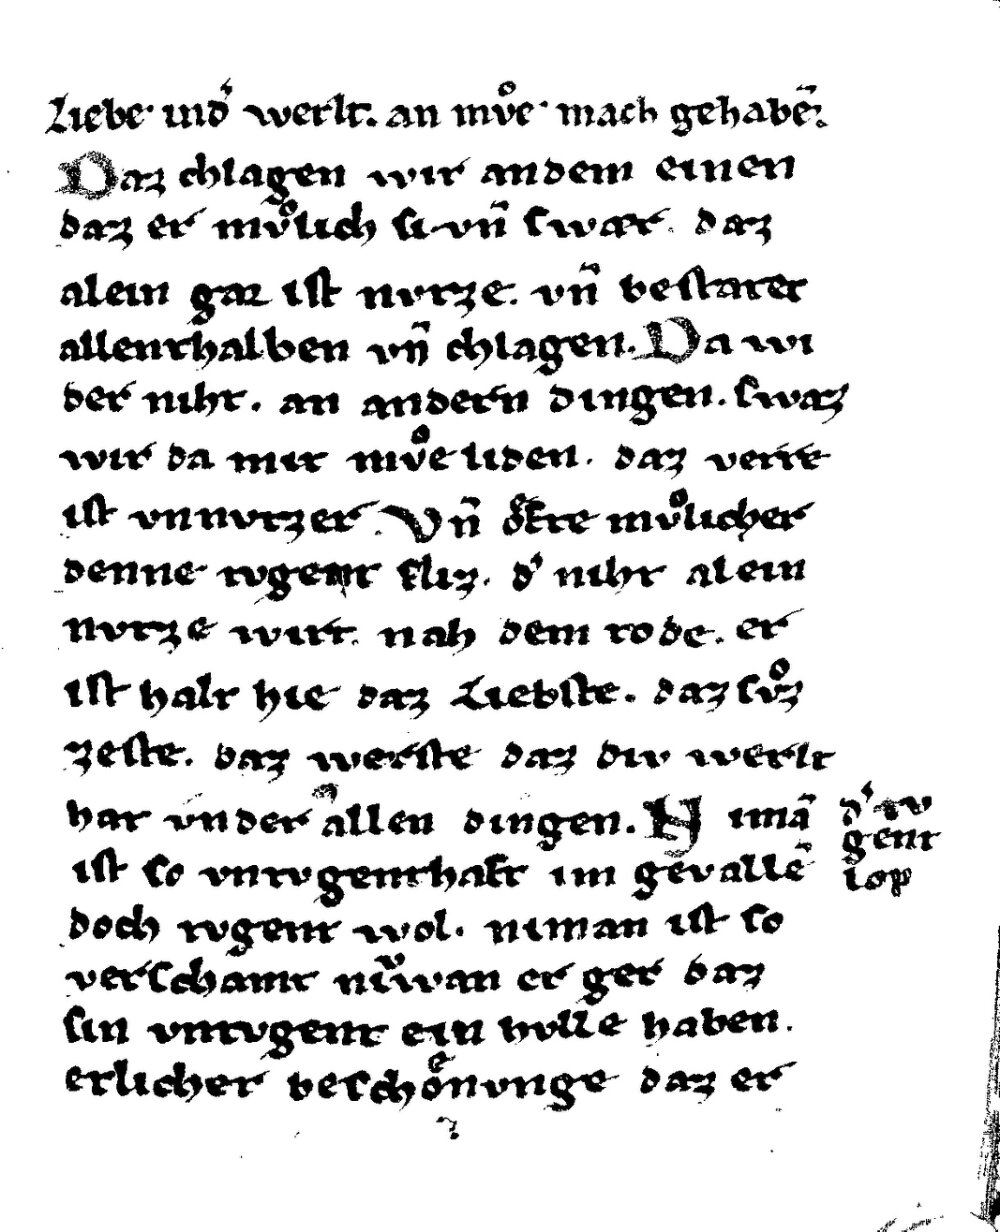 Liebe· uĩ d͛ werlt. an mvͦe· mach gehabẽ.
Daz chlagen wir an dem einen
daz er mvͦlich si· vñ swær. daz
alein gar ist nvtze. vñ bestatet
allenthalben vñ chlagen. Da wi
der niht. an andern dingen. swaz
wir da mit mvͦe liden. daz verre
ist vnnvtzer. Vñ oͤfte mvͦlicher
denne tvgent fliz. d͛ niht alein
nvtze wirt. nah dem tode. er
ist halt hie daz Liebste. daz svͦz
zeste. daz werste daz div werlt
hat vnder allen dingen. Nimã
ist so vntvgenthaft im gevallẽ
doch tvgent wol. niman ist so
verschamt niwan er ger daz
sin vntvgent ein hvlle haben.
erlicher beschoͤnvnge daz er
d͛ tv
gent
lop